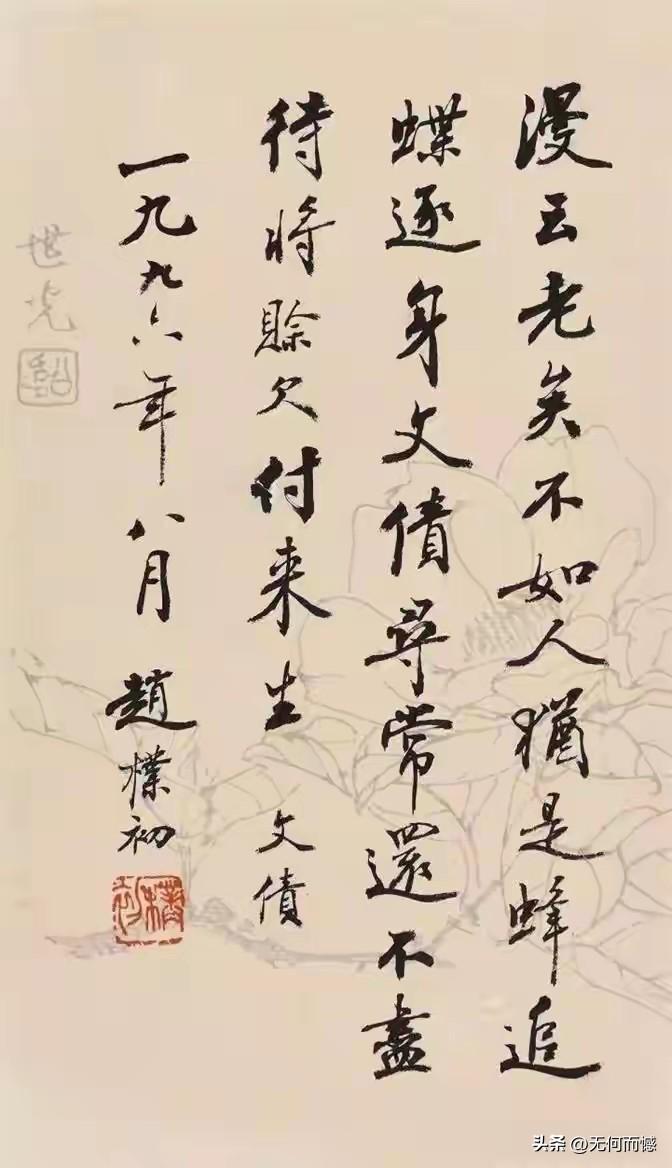 漫云老矣不如人猶是蜂追
蝶逐身文債尋常還不盡
待將賒欠付来生 文債
一九九六年八月 趙樸初
世光
头条 @无何而憾